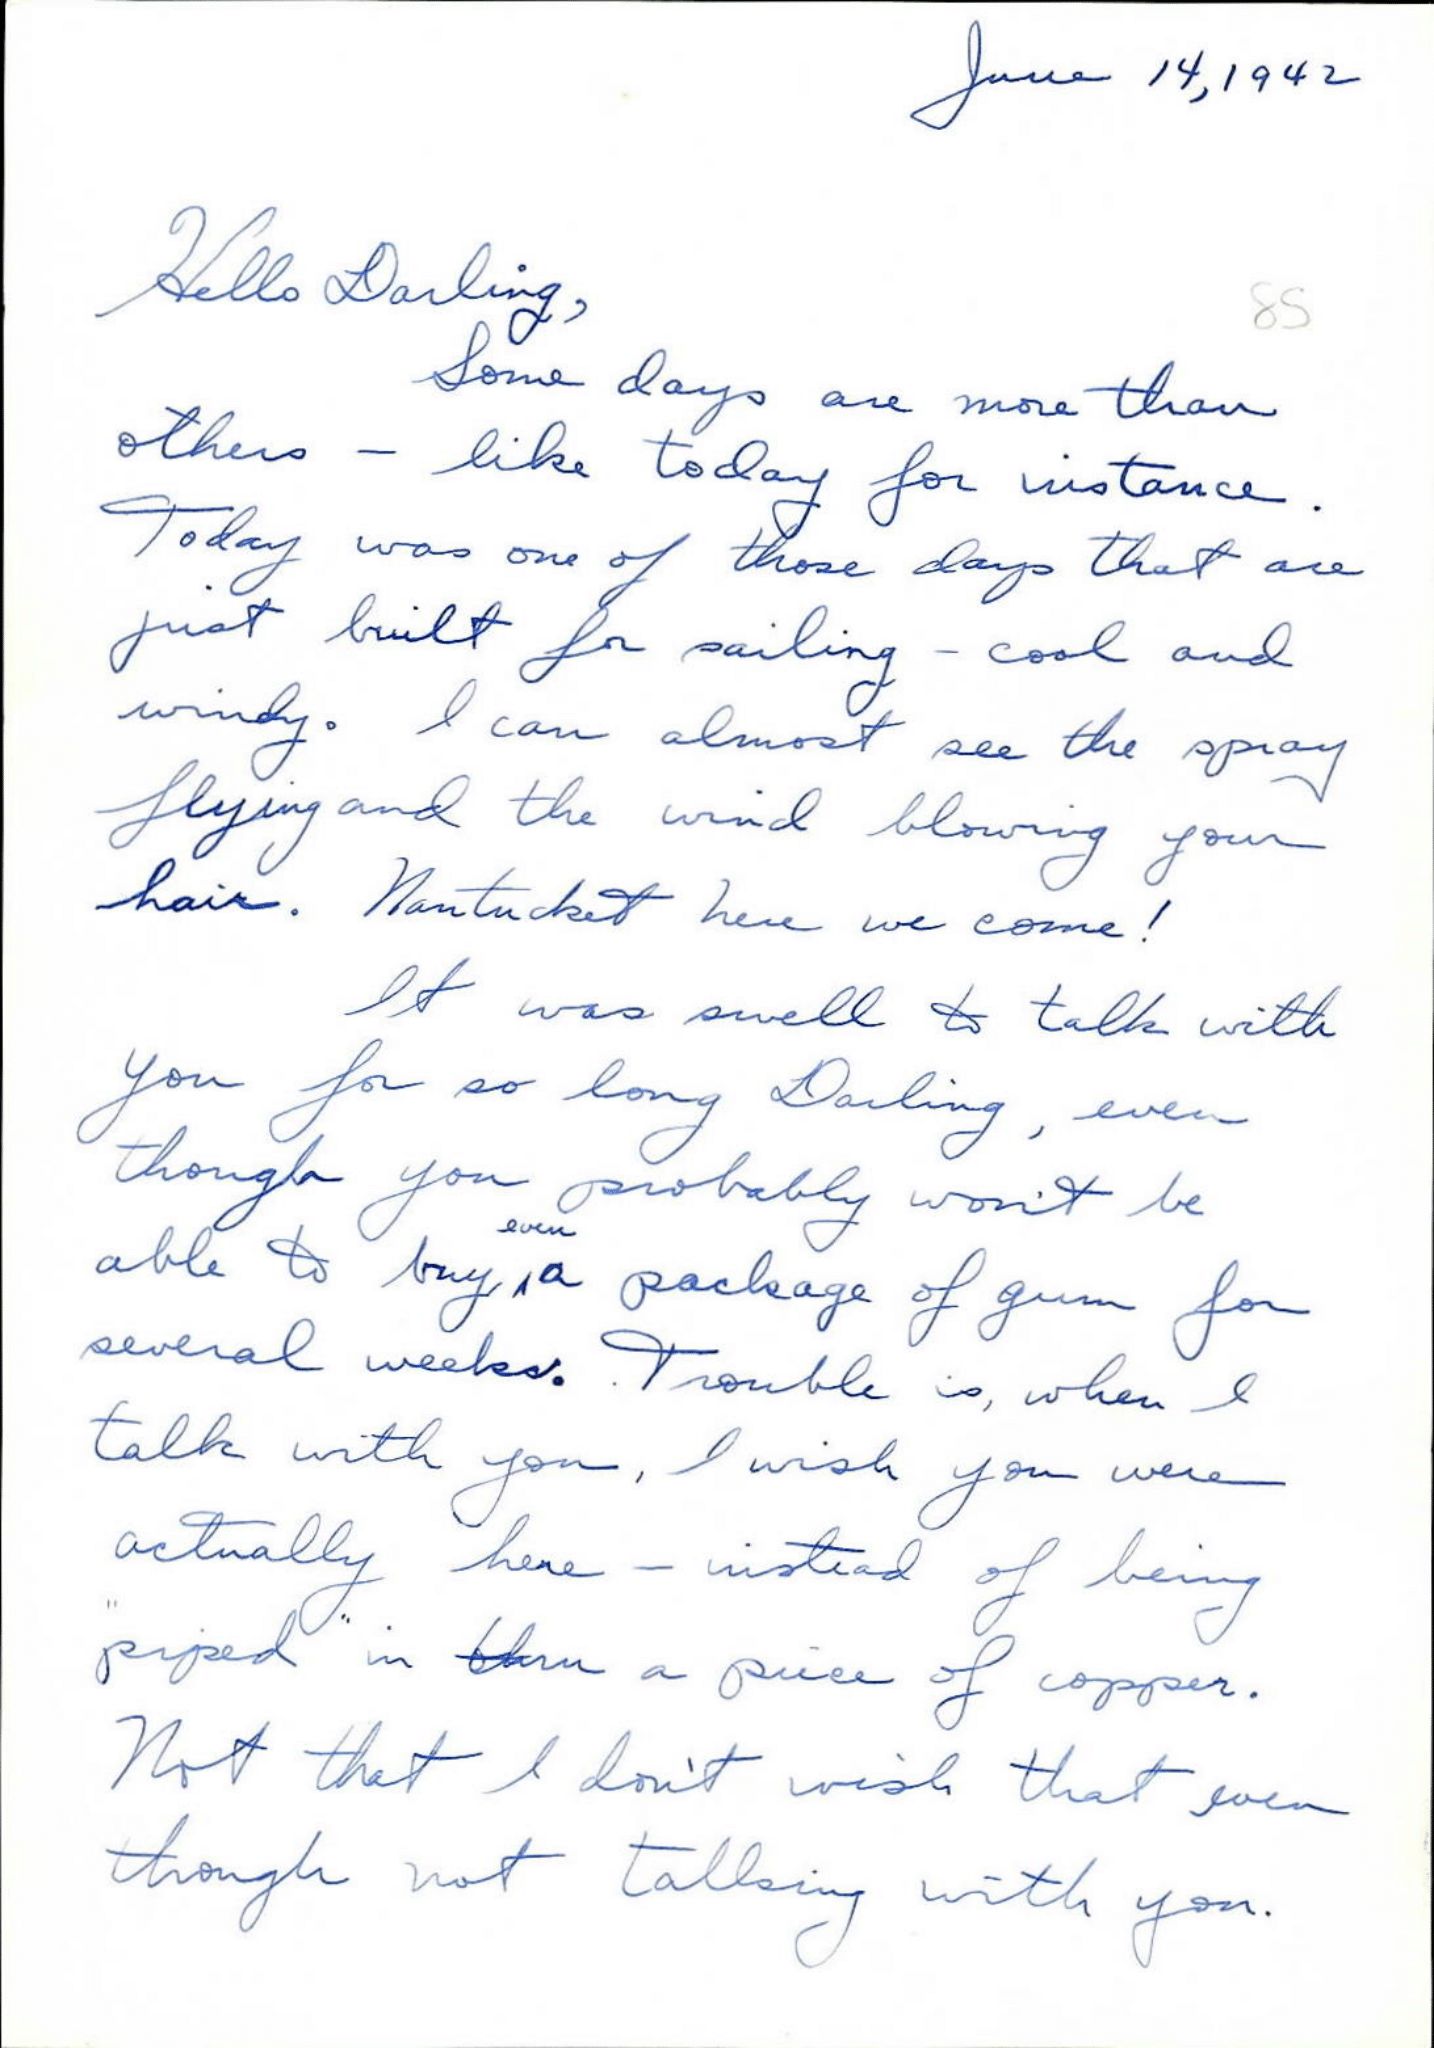 June 14, 1942
Hello Darling,
85
Some days are more than
others - like today for instance.
Today was one of those days that are
just built for sailing - cool and
windy. I can almost see the spray
flying and the wind blowing your
hair. Nantucket here we come!
It was swell to talk with
you for so long Darling, even
though you probably won't be
able to buy even a package of gum for
several weeks. Trouble is, when I
talk with you, I wish you were
actually here - instead of being
"piped" in thru a piece of copper.
Not that I don't wish that even
though not talking with you.